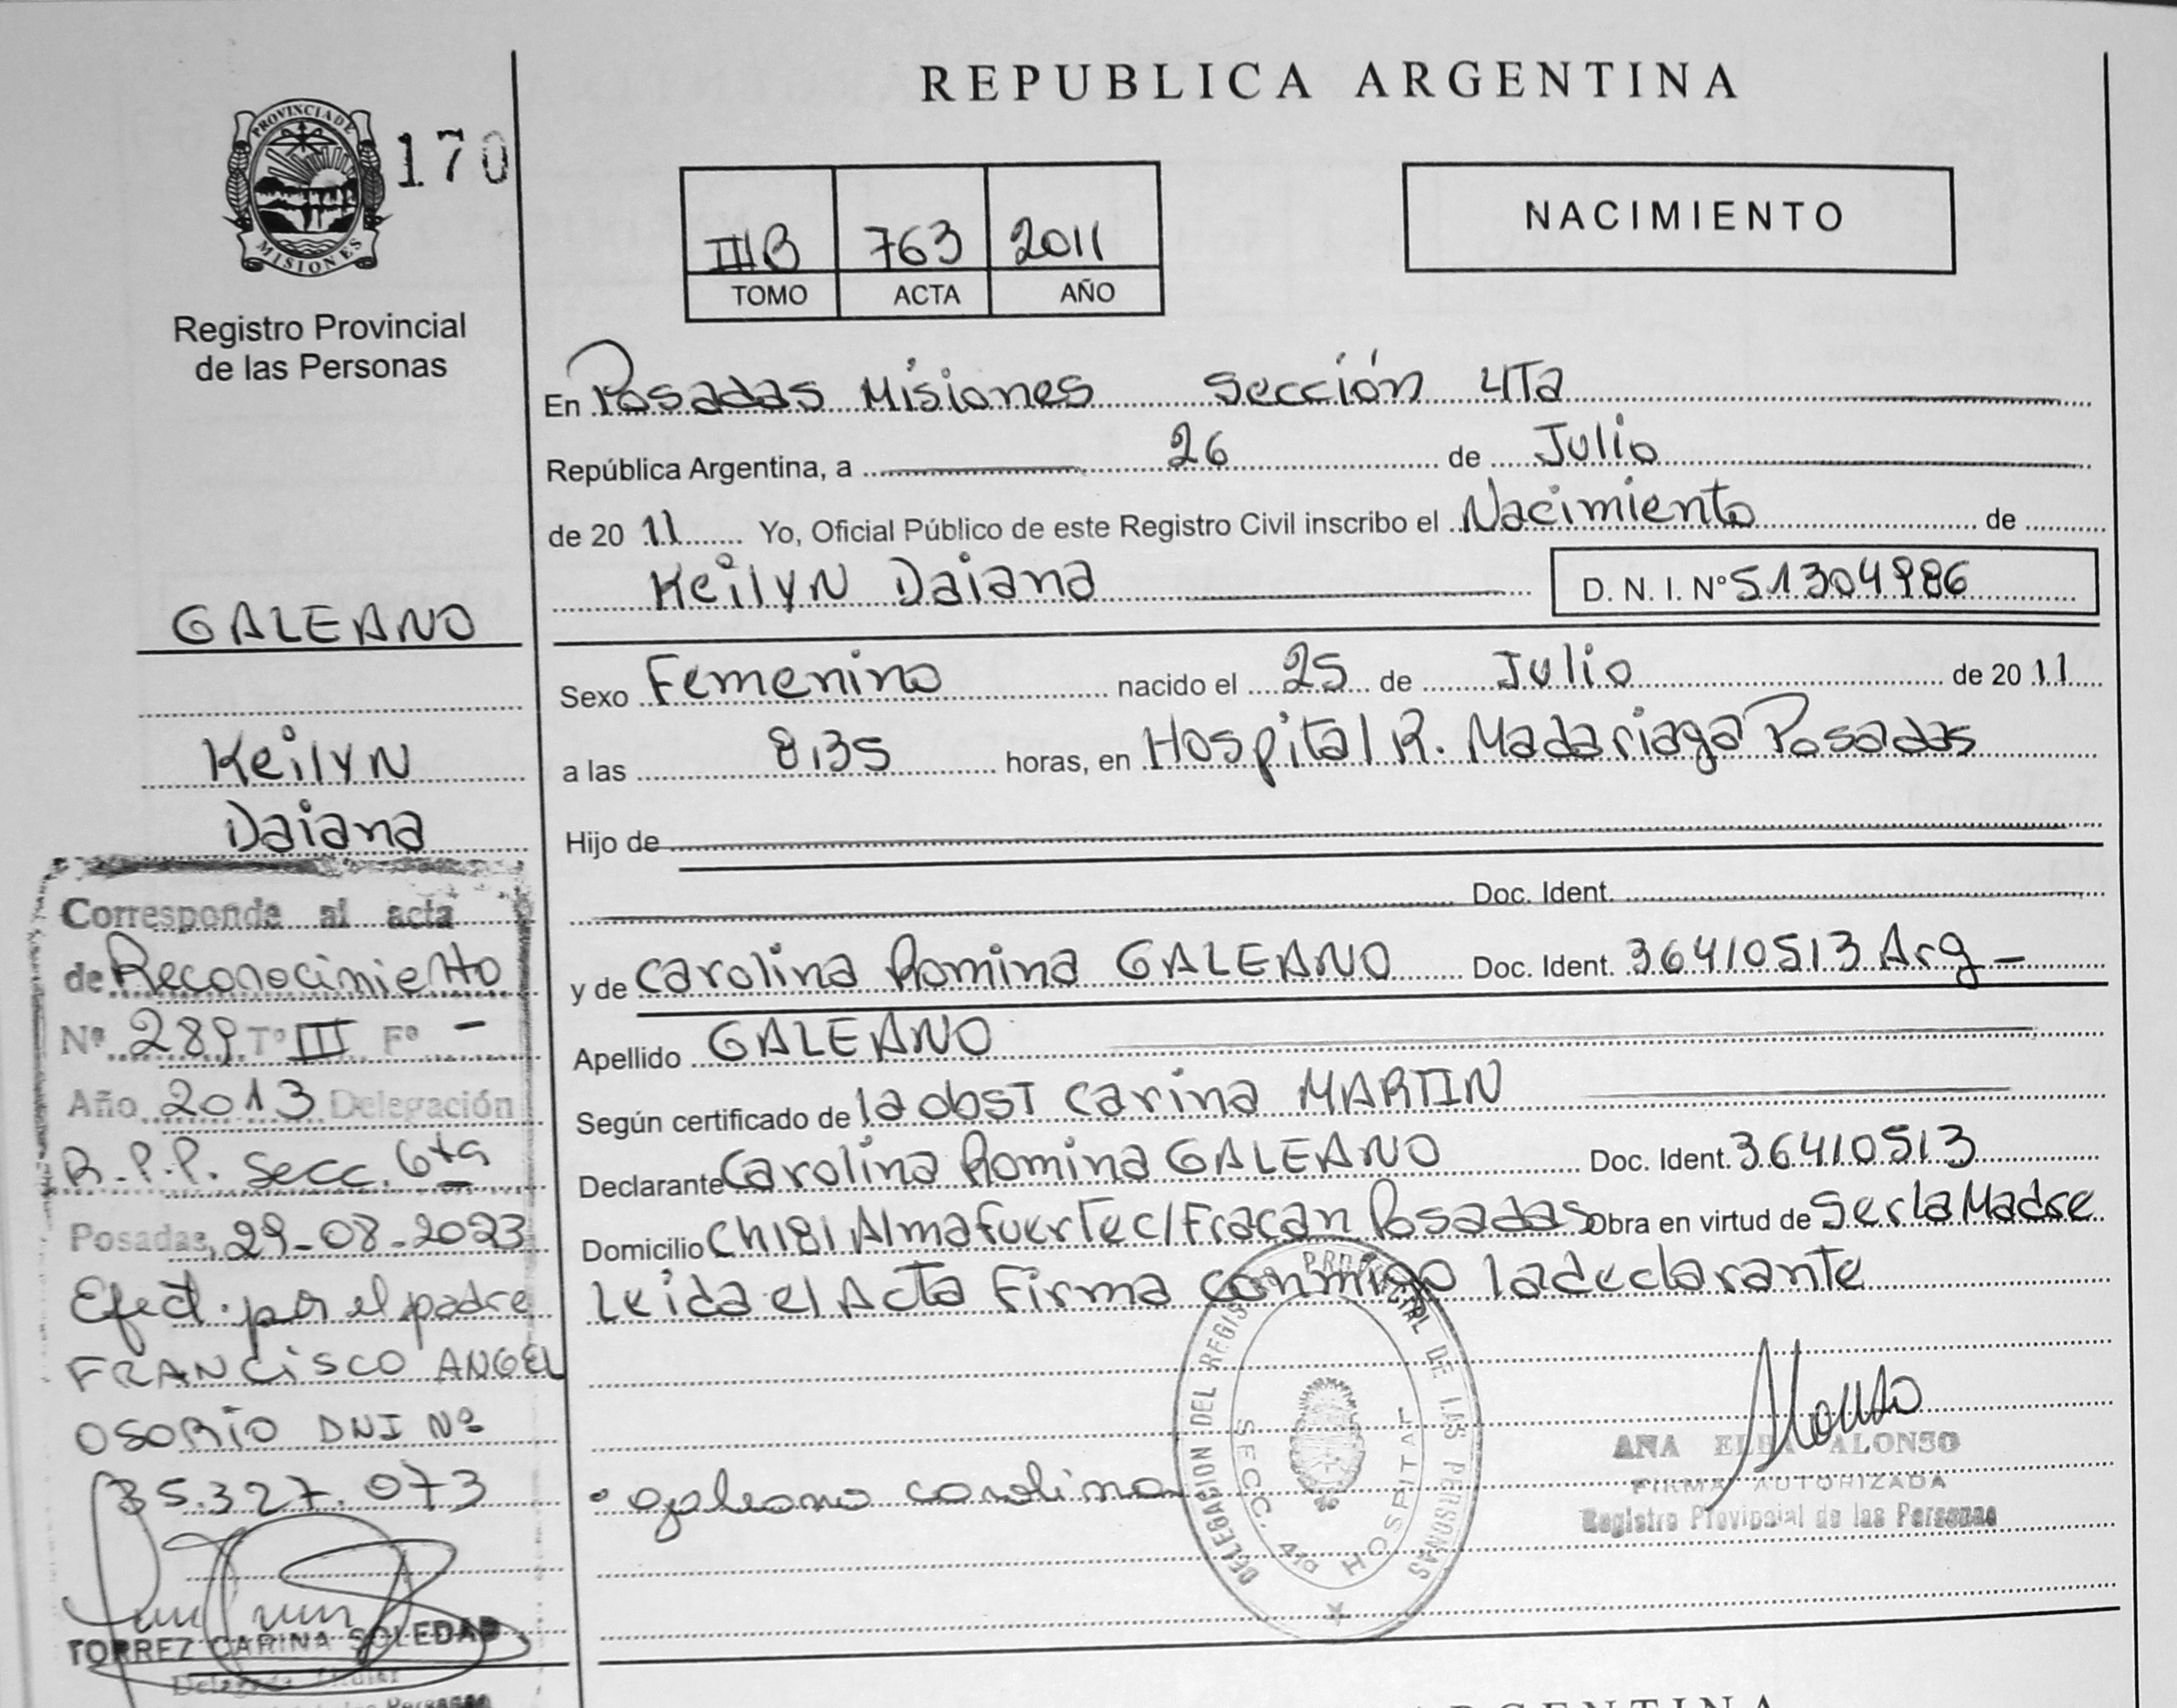 REPUBLICA ARGENTINA
PROVINCIA DE
MISIONES
170
Registro Provincial
de las Personas
IIIB 763 2011
TOMO ACTA AÑO
NACIMIENTO
En Posadas Misiones Sección 4Ta
República Argentina, a 26 de Julio
de 20 11 Yo, Oficial Público de este Registro Civil inscribo el Nacimiento de
Keilyn Daiana D. N. I. Nº 51304986
Sexo Femenino nacido el 25 de Julio de 20 11
a las 8,35 horas, en Hospital R. Madariaga Posadas
Hijo de
Doc. Ident.
y de Carolina Romina GALEANO Doc. Ident. 36410513 Arg
Apellido GALEANO
Según certificado de la obst Carina MARTIN
Declarante Carolina Romina GALEANO Doc. Ident. 36410513
Domicilio Ch181 Almafuerte c/ Fracan Posadas Obra en virtud de Ser la Madre
Leida el Acta Firma conmigo la declarante
galeano carolina
DELEGACION DEL REGISTRO PROVINCIAL DE LAS PERSONAS
SECC. 4ta HOSPITAL
ANA ELBA ALONSO
FIRMA AUTORIZADA
Registro Provincial de las Personas
GALEANO
Keilyn
Daiana
Corresponde al acta
de Reconocimiento
Nº 289 Tº III Fº -
Año 2013 Delegación
R.P.P. Secc. 6ta
Posadas, 29-08-2023
Efect. por el padre
FRANCISCO ANGEL
OSORIO DNI Nº
35.327.073
TORREZ CARINA SOLEDAD
Delegada Titular
Personas
ARGENTINA